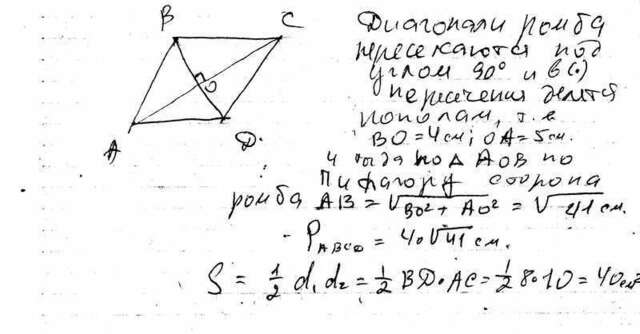 B
C
Диагонали ромба
пересекаются под
углом 90° и в (·)
O
пересечения делятся
пополам, т.е
A
D.
BO = 4 см; OA = 5 см.
и тогда по Δ AOB по
Пифагору сторона
ромба AB = √BO² + AO² = √41 см.
- P ABCD = 4·√41 см.
S = 1/2 d₁ d₂ = 1/2 BD·AC = 1/2 8·10 = 40 см²